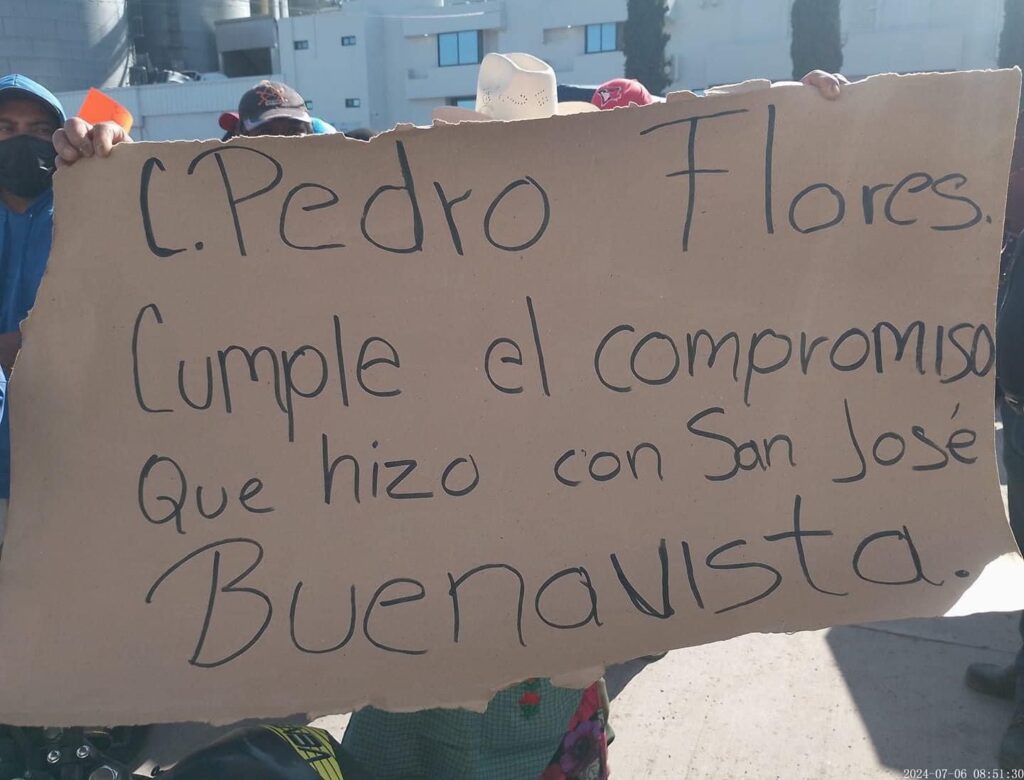 C. Pedro Flores.
Cumple el compromiso
Que hizo con San José
Buenavista.
2024-07-06 08:51:30